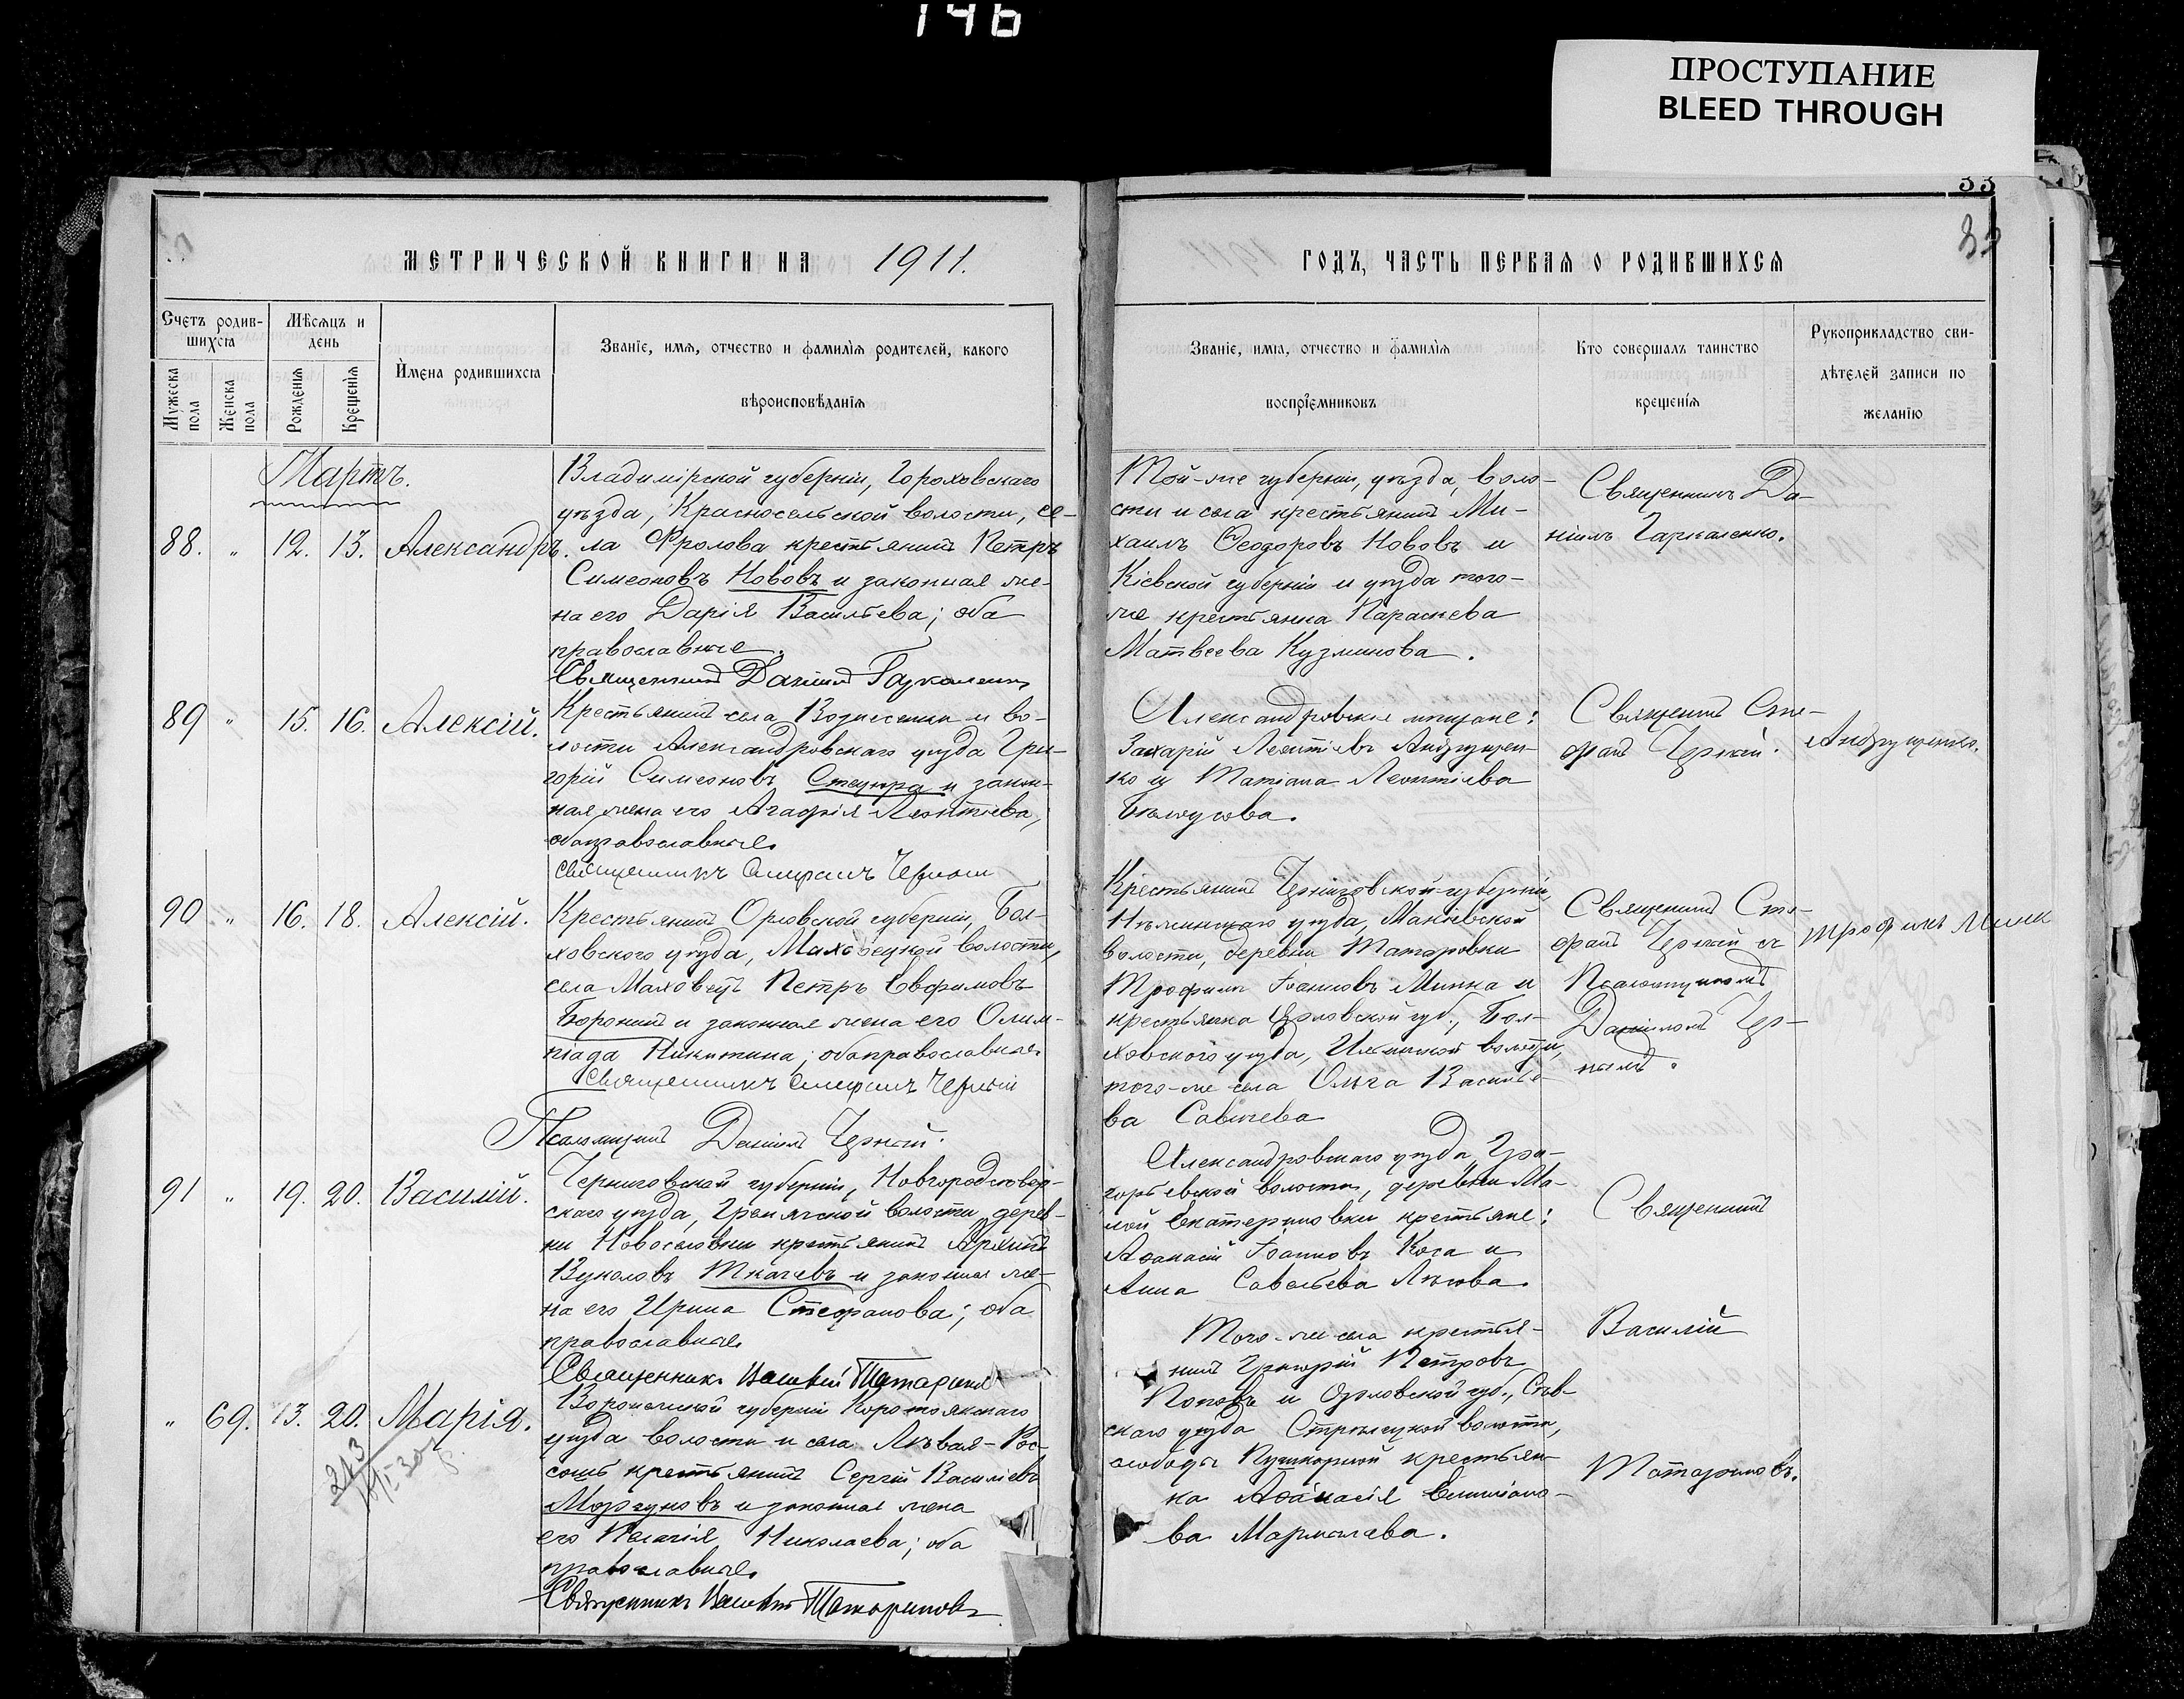 146
ПРОСТУПАНИЕ
BLEED THROUGH
33
33
МЕТРИЧЕСКОЙ КНИГИ НА 1911.
ГОДЪ, ЧАСТЬ ПЕРВАЯ О РОДИВШИХСЯ
Счетъ родив-
шихся
Мѣсяцъ и
день
Мужеска пола
Женска пола
Рожденія
Крещенія
Имена родившихся
Званіе, имя, отчество и фамилія родителей, какого
вѣроисповѣданія
Званіе, имя, отчество и фамилія
воспріемниковъ
Кто совершалъ таинство
крещенія
Рукоприкладство сви-
дѣтелей записи по
желанію
Мартъ.
88. " 12. 13. Александръ.
Владимірской губерніи, Гороховскаго
уѣзда, Красносельской волости, се-
ла Фролова крестьянинъ Петръ
Симеоновъ Нововъ и законная же-
на его Дарія Васильева; оба
православные.
Священникъ Даніилъ Гаркаленко
Той-же губерніи, уѣзда, воло-
сти и села крестьянинъ Ми-
хаилъ Ѳеодоровъ Нововъ и
Кіевской губерніи и уѣзда того-
же крестьянка Параскева
Матвеева Кузминова.
Священникъ Да-
ніилъ Гаркаленко.
89 " 15. 16. Алексій.
Крестьянинъ села Вознесенки и во-
лости Александровскаго уѣзда Гри-
горій Симеоновъ Стецюра и закон-
ная жена его Агафія Леонтіева,
оба православные.
Священникъ Стефанъ Черный
Александровскіе мѣщане:
Захарій Леонтіевъ Андрущен-
ко и Татіана Леонтіева
Священникъ Сте-
фанъ Черный.
Андрущенко.
90 " 16. 18. Алексій.
Крестьянинъ Орловской губерніи, Бол-
ховского уѣзда, Маховецкой волости,
села Маховецъ Петръ Евфимовъ
Боронинъ и законная жена его Олим-
піада Никитина; оба православные
Священникъ Стефанъ Черный
Псаломщикъ Даніилъ Черный.
Крестьянинъ Черниговской губерніи,
уѣзда,
волости, деревни Татаровки
Трофимъ Іоанновъ Минка и
крестьянка Орловской губ., Бол-
ховского уѣзда, волости,
того-же села Ольга Василье-
ва Савичева
Священникъ Сте-
фанъ Черный съ
Псаломщикомъ
Даніиломъ Чер-
нымъ.
Трофимъ Минка
91 " 19. 20. Василій.
Черниговской губерніи, Новгородсѣвер-
скаго уѣзда, Гремячской волости, дерев-
ни Новоселовки крестьянинъ Архипъ
Вуколовъ Ткачевъ и законная же-
на его Ирина Стефанова; оба
православные.
Священникъ Василій Татариновъ
Александровскаго уѣзда, Гри-
горьевской волости, деревни Ма-
лой Екатериновки крестьяне:
Аѳанасій Іоанновъ Коса и
Анна Савельева
Священникъ
Василій
Татариновъ.
" 69. 13. 20. Марія.
Воронежской губерніи Коротоякскаго
уѣзда волости и села Лѣвая-Рос-
сошь крестьянинъ Сергій Василіевъ
Моргуновъ и законная жена
его Пелагія Николаева; оба
православные.
Священникъ Василій Татариновъ
Того-же села крестья-
нинъ Григорій Петровъ
Поповъ и Орловской губ., Сѣв-
скаго уѣзда Стрѣлецкой волости,
слободы Пушкарной крестьян-
ка Аѳанасія Емиліано-
ва